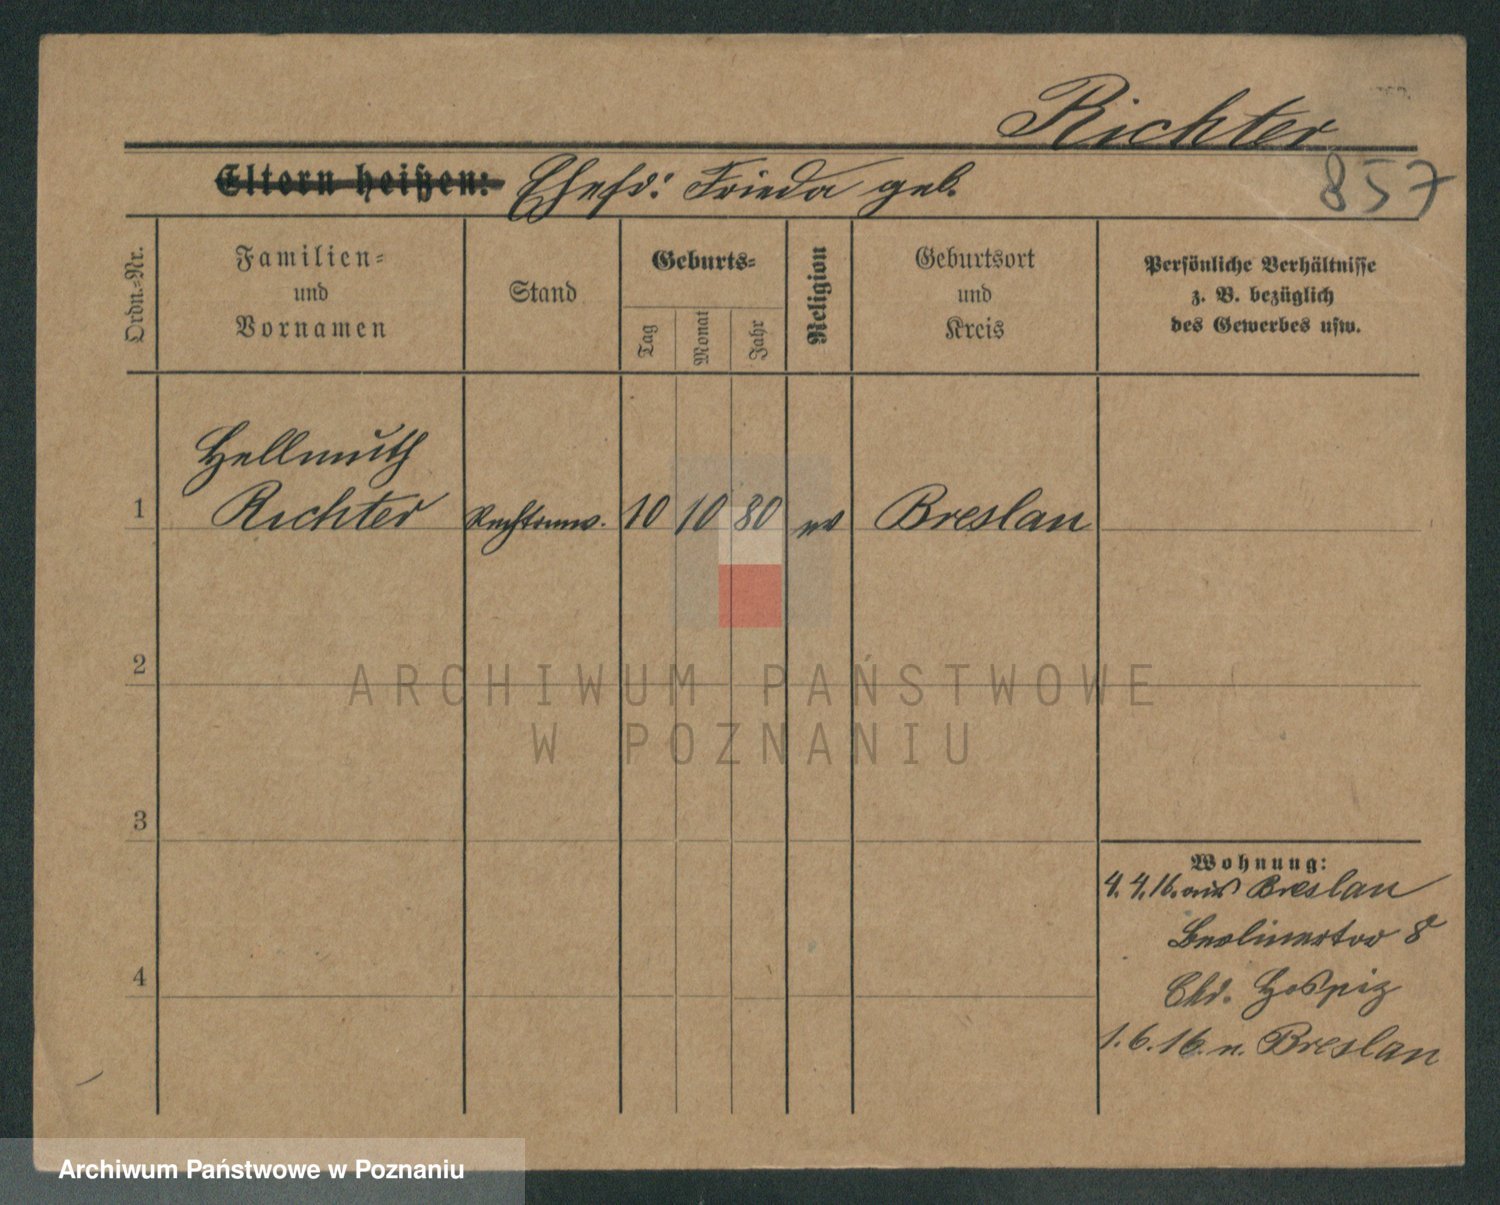 Richter
857
Eltern heißen: Ehefr: Frieda geb.
Ordn.=Nr.
Familien=
und
Vornamen
Stand
Geburts=
Tag
Monat
Jahr
Religion
Geburtsort
und
Kreis
Persönliche Verhältnisse
z. B. bezüglich
des Gewerbes usw.
Hellmuth
1 Richter Rechtsanw. 10 10 80 ev Breslau
2
ARCHIWUM PAŃSTWOWE
W POZNANIU
3
Wohnung:
4. 4. 16. aus Breslau
Berlinerstr 8
4
Chr. Hospiz
1. 6. 16. n. Breslau
Archiwum Państwowe w Poznaniu